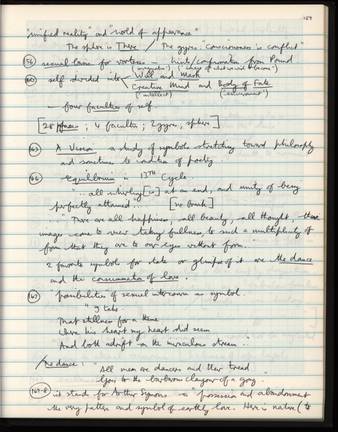 "unified reality" and "world of appearance"
The sphere is There / The gyres: consciousness is conflict"
sexual base for vortexes – hint/confirmation from Pound
self divided into Will and Mask
Creative Mind and Body of Fate
("intellect") ("environment")
– four faculties of self
[28 phases; 4 faculties; 2 gyres, sphere]
A Vision – a study of symbols stretching toward philosophy
and sometimes to condition of poetry
Equilibrium in 13TH Cycle
"... all whirling [is] at an end, and unity of being
perfectly attained." [no break]
"There are all happiness, all beauty, all thought, their
images come to view taking fullness, to such a multiplicity of
form that they are to our eyes without form.
2 favorite symbols for state or glimpse of it are the dance
and the consummation of love.
possibilities of sexual intercourse as symbol
"I take
That stillness for a theme
Where his heart my heart did seem
And both adrift on the miraculous stream.."
The dance: All men are dancers and their tread
Goes to the barbarous clangour of a gong.
it stands for Arthur Symons – "possession and abandonment
the very pattern and symbol of earthly love. Here is nature (to